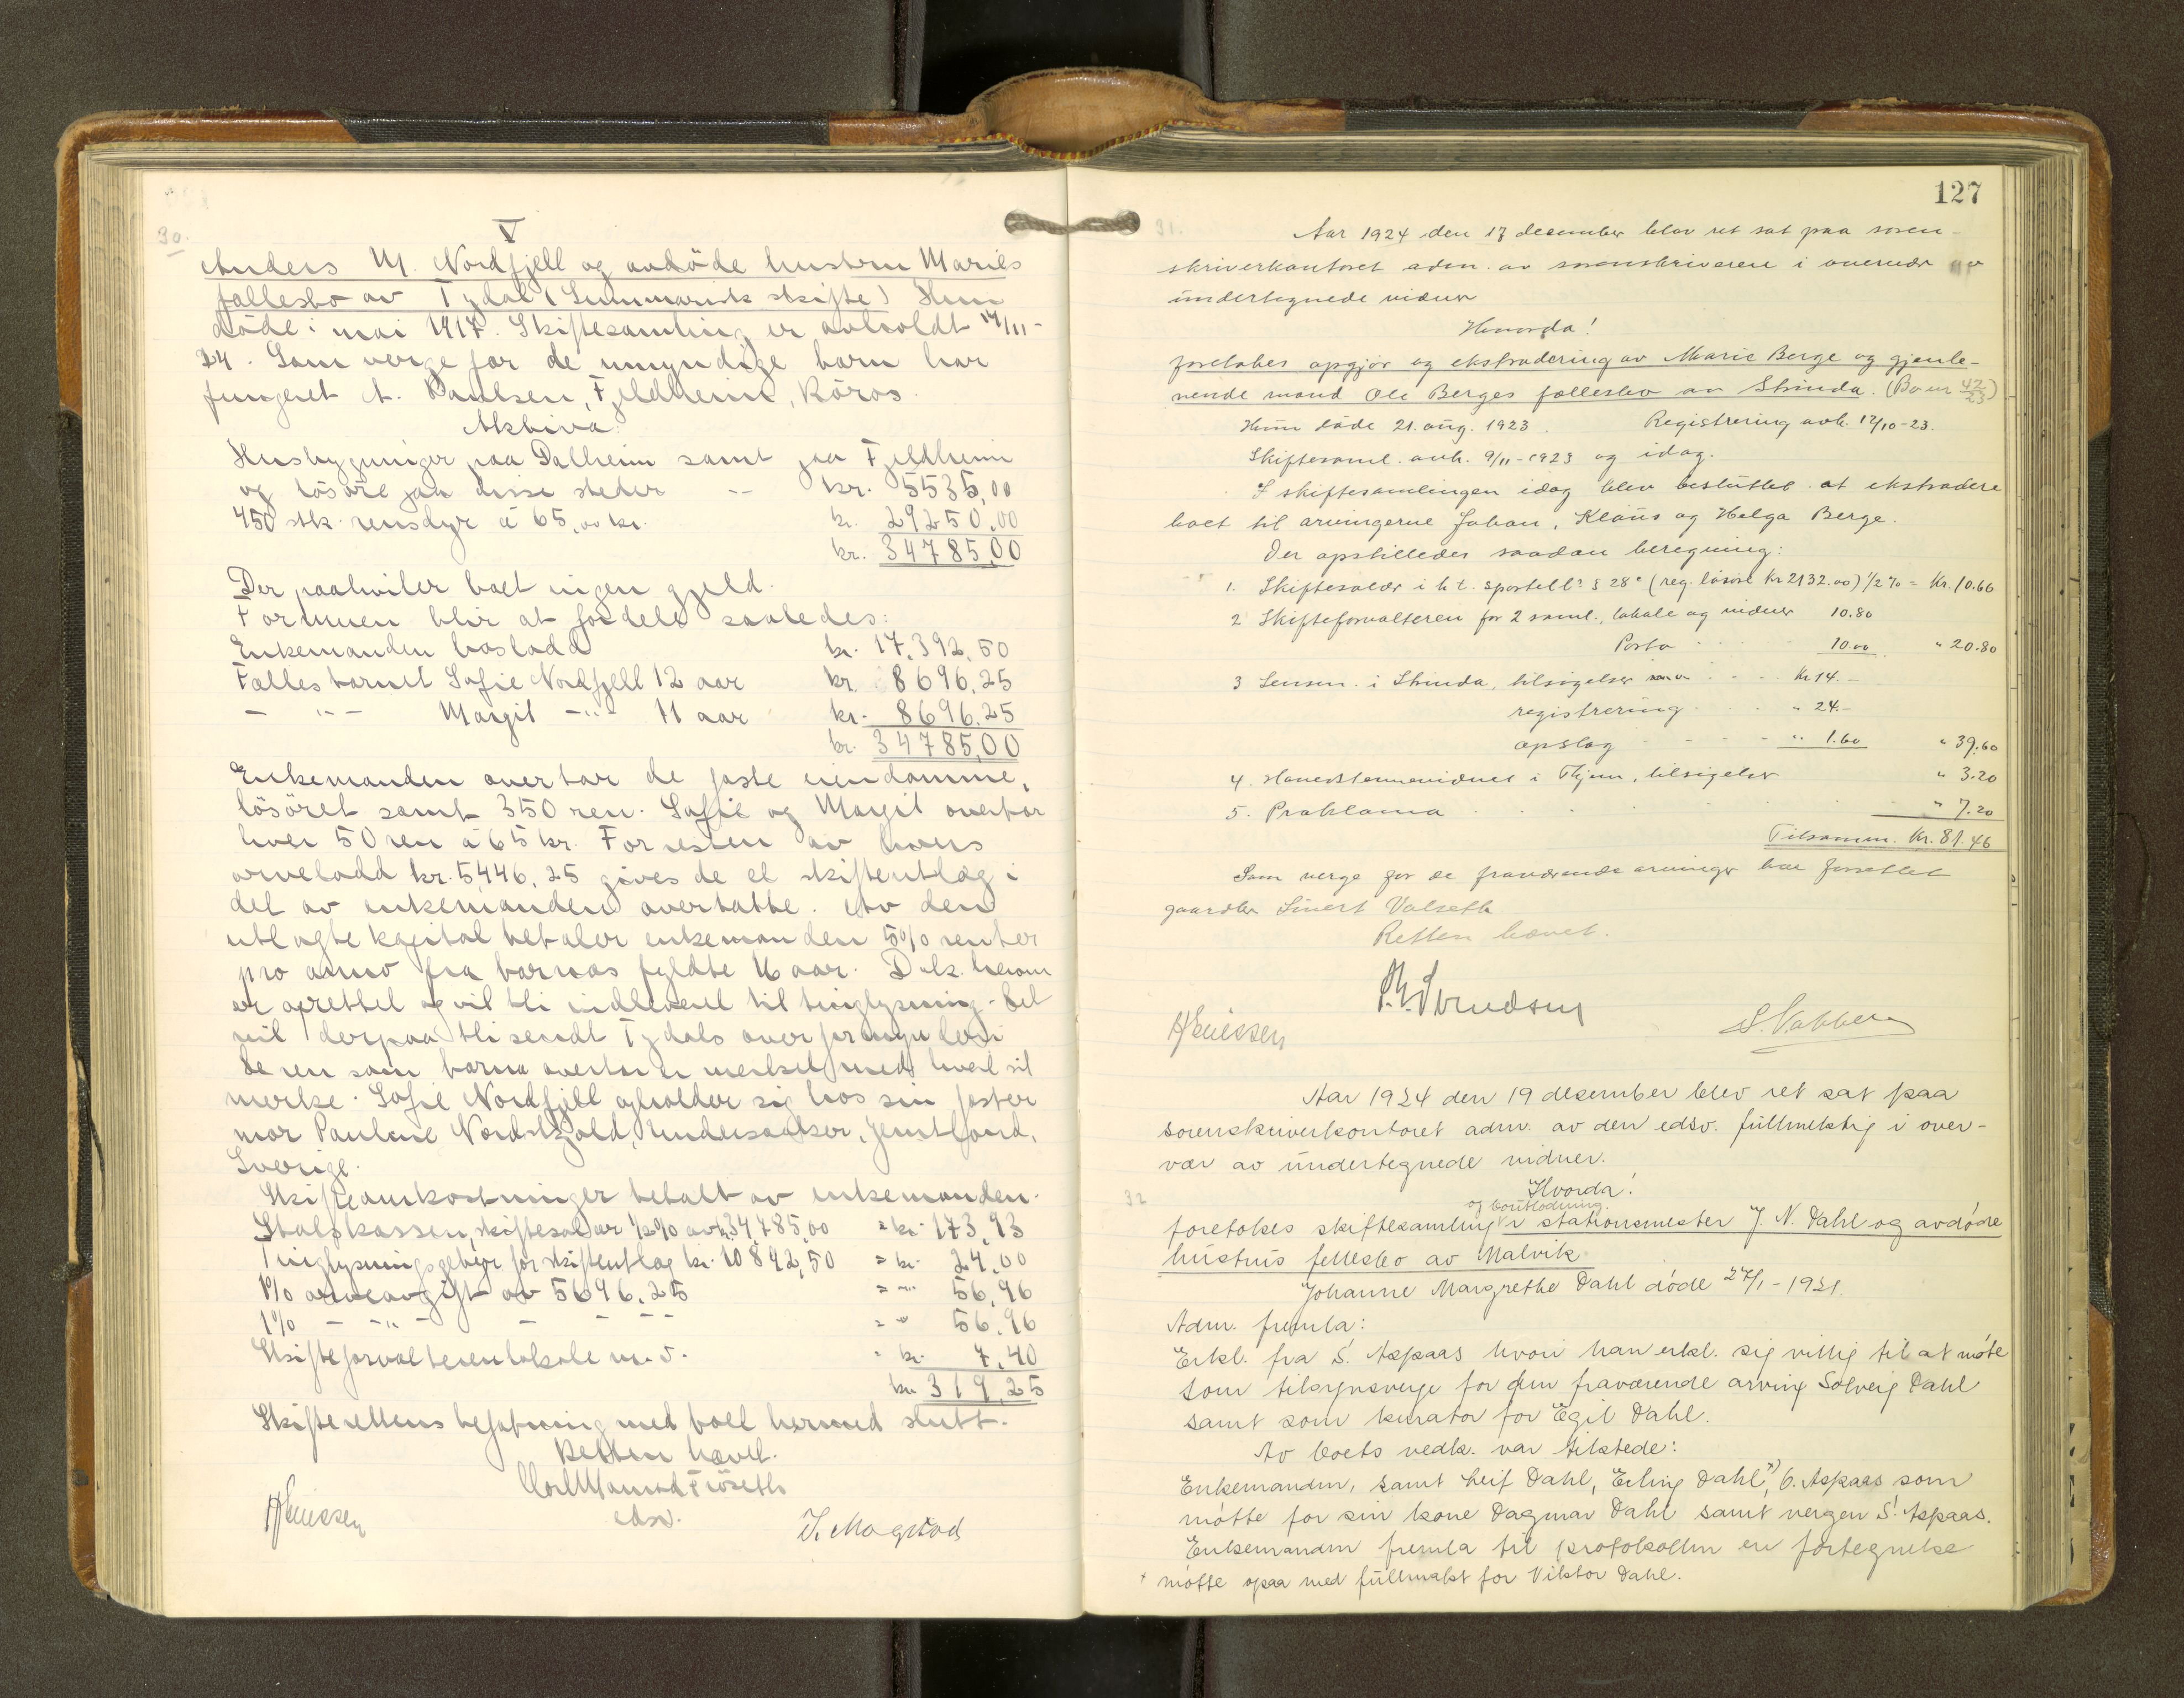 30.
V
Anders M. Nordfjell og avdöde hustru Maries
fællesbo av Tydal (Summarisk skifte) Hun
döde i mai 1917. Skiftesamling er avholdt 14/11-
24. Som verge for de umyndige barn har
fungeret A. Paulsen, Fjeldheim, Röros.
Aktiva:
Husbygninger paa Dalheim samt paa Fjeldheim
og lösöre paa disse steder kr. 5535,00
450 stk. rensdyr à 65,00 kr. kr. 29250,00
kr. 34785,00
Der paahviler boet ingen gjeld.
Formuen blir at fordele saaledes:
Enkemanden boslodd kr. 17,392,50
Fællesbarnet Sofie Nordfjell 12 aar kr. 8696,25
— " — Margit — " — 11 aar kr. 8696,25
kr. 34785,00
Enkemanden overtar de faste eiendomme,
lösöret samt 350 ren. Sofie og Margit overtar
hver 50 ren à 65 kr. For resten av hvers
arvelodd kr. 5446,25 gives de et skifteutlæg i
det av enkemanden overtatte. Av den
utlagte kapital betaler enkemanden 5% renter
pro anno fra barnas fyldte 16 aar. Dok. herom
er oprettet og vil bli indleveret til tinglysning. Det
vil derpaa bli sendt Tydals overformynderi
De ren som barna overtar er merket med hvert sit
merke. Sofie Nordfjell opholder sig hos sin faster
mor Paulene Nordskjold, Undersaaker, Jemtland,
Sverige.
Skifteomkostninger betalt av enkemanden.
Statskassen, skiftesalær 1/2% av kr. 34,785,00 = kr. 173,93
Tinglysningsgebyr for skifteutlæg kr. 10892,50 = kr. 24,00
1% arveavgift av 5696,25 = " 56,96
1% — " — — — = " 56,96
Skifteforvalteren lokale m. v. " kr. 7,40
kr. 319,25
Skifterettens befatning med boet hermed slutt.
Retten hævet.
edsv.
J. Mogstad
127
31.
Aar 1924 den 17 december blev ret sat paa soren-
skriverkontoret adm. av sorenskriveren i overvær av
undertegnede vidner
Hvorda!
foretokes opgjør og ekstradering av Marie Berge og gjenle-
vende mand Ole Berges fællesbo av Strinda. (Bo nr 42/23)
Hun døde 21. aug. 1923. Registrering avh. 12/10-23.
Skiftesaml. avh. 9/11-1923 og idag.
I skiftesamlingen idag blev besluttet at ekstradere
boet til arvingerne Johan, Klaus og Helga Berge.
Der opstilledes saadan beregning:
1. Skiftesalær i h. t. sportell? § 28? (reg. løsøre kr 2132.00) 1/2% = kr. 10.66
2 Skifteforvalteren for 2 saml., lokale og vidner 10.80
Porto 10.00 " 20.80
3 Lensm. i Strinda, tilsigelser kr 14.—
registrering " 24.—
opslag " 1.60 " 39.60
4. Hovedstevnevidnet i Thjem, tilsigelser " 3.20
5. Proklama " 7.20
Tilsamm. kr. 81.46
Som verge for de fraværende arvinger har forrettet
gaardbr. Sivert Valseth
Retten hævet.
Aar 1924 den 19 desember blev ret sat paa
sorenskriverkontoret adm. av den edsv. fullmektig i over-
vær av undertegnede vidner.
Hvorda!
32
og boutlodning
foretokes skiftesamling i stationsmester J. N. Dahl og avdøde
hustrus fellesbo av Malvik.
Johanne Margrethe Dahl døde 27/1-1921.
Adm. fremla:
Erkl. fra S. Aspaas hvori han erkl. sig villig til at møte
som tilsynsverge for den fraværende arving Solveig Dahl
samt som kurator for Egil Dahl.
Av boets vedk. var tilstede:
Enkemanden, samt Leif Dahl, Erling Dahl x), O. Aspaas som
møtte for sin kone Dagmar Dahl samt vergen S. Aspaas.
Enkemanden fremla til protokollen en fortegnelse
x møtte ogsaa med fullmakt for Viktor Dahl.